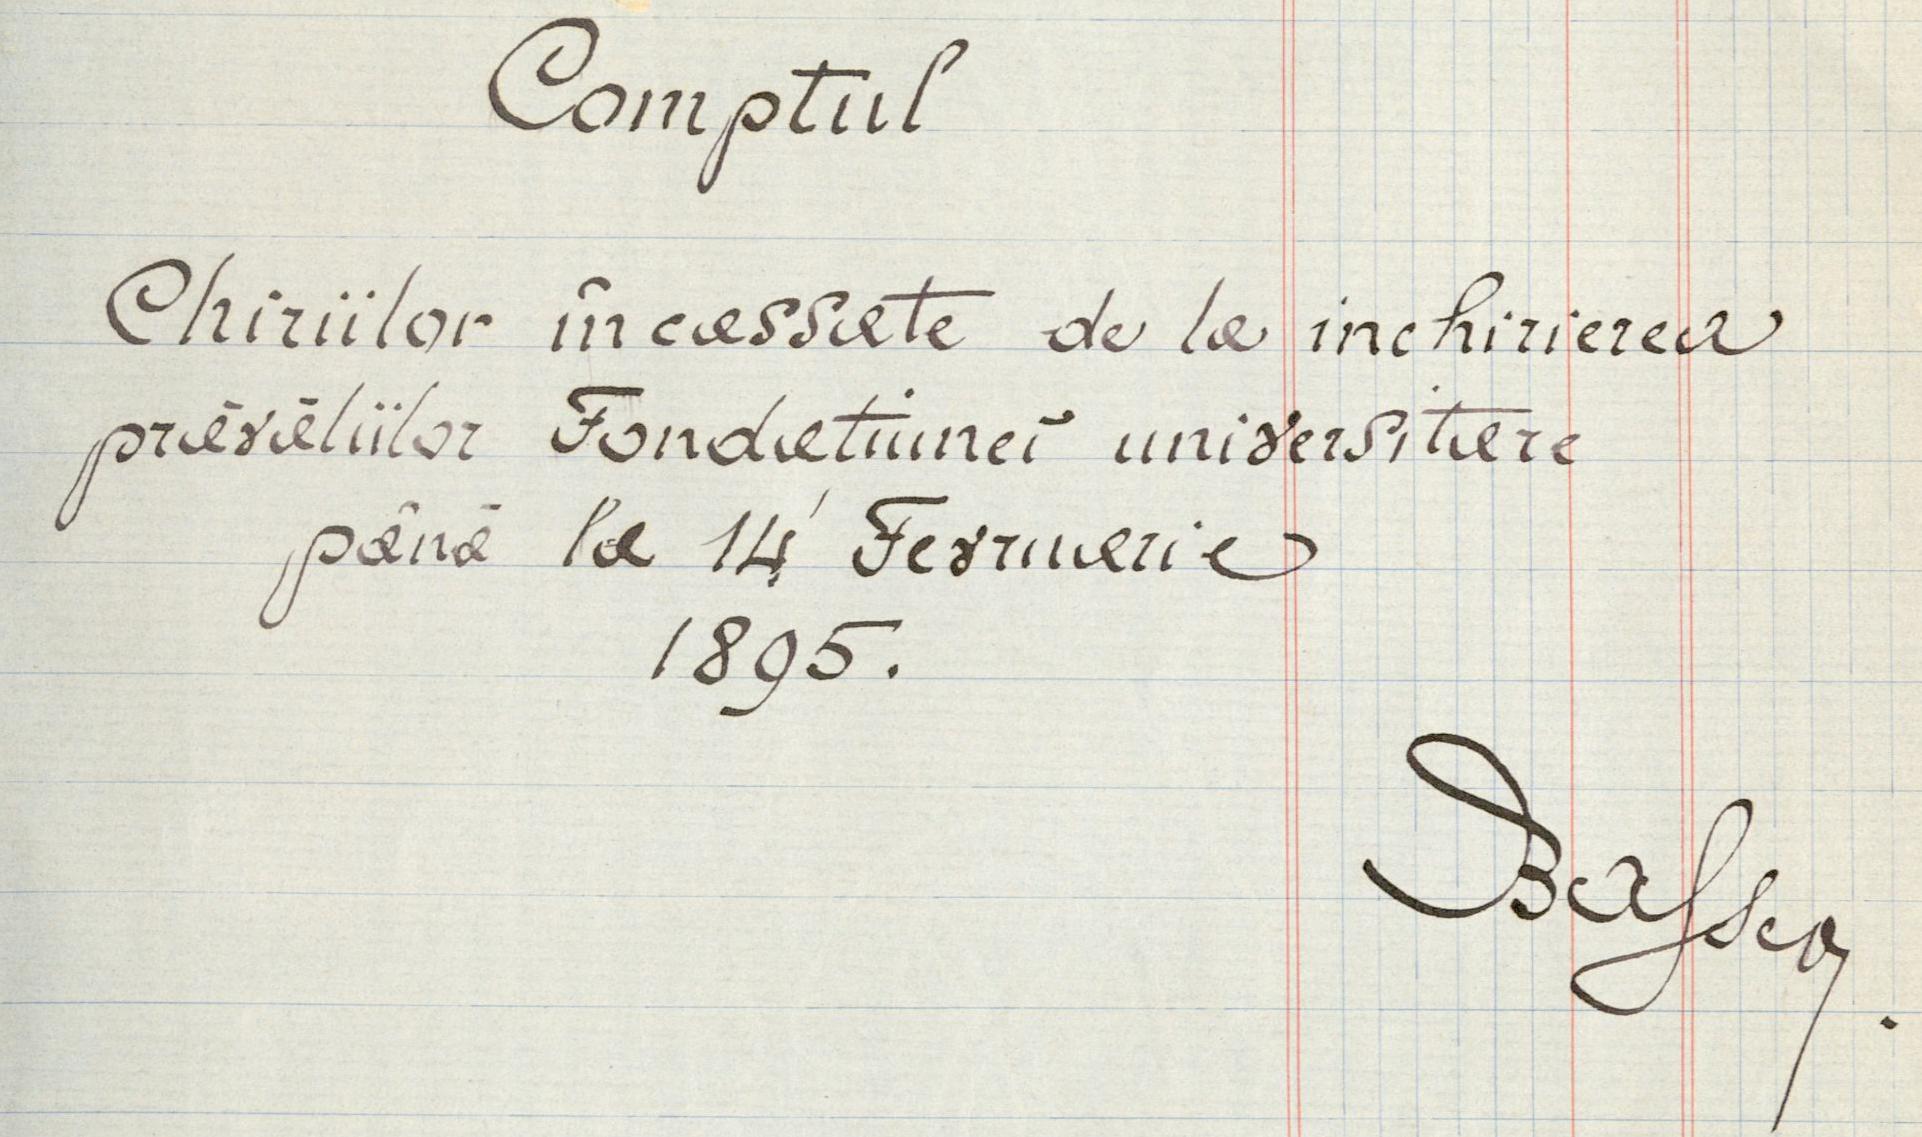 Comptul
Chiriilor încassate de la inchirierea
prăvăliilor Fondatiunei universitare
până la 14 Fevruarie
1895.
Bassea.